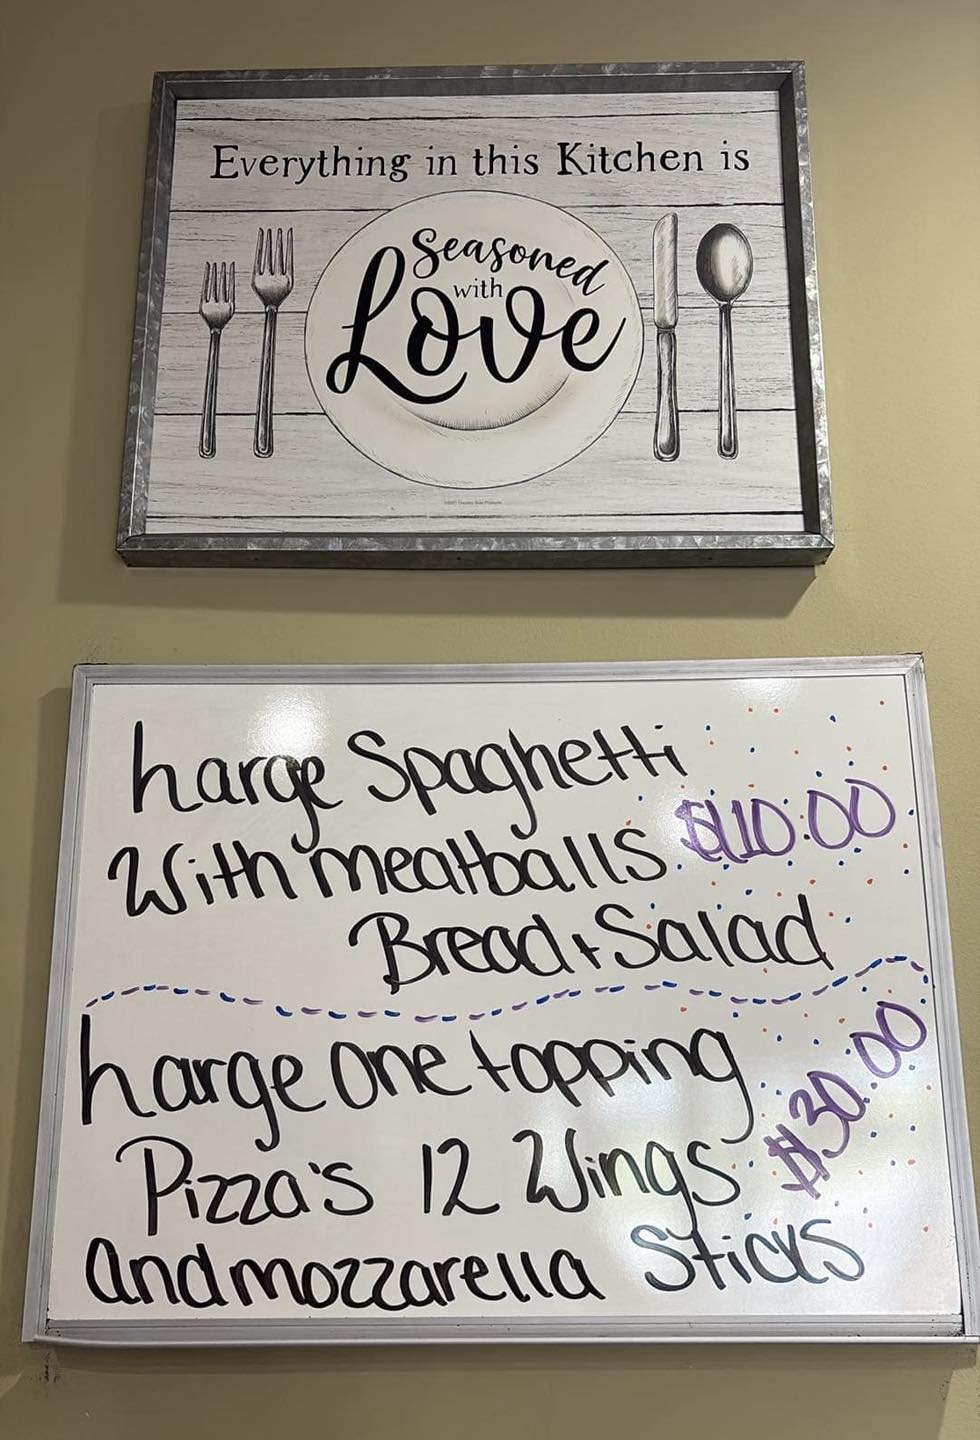 Everything in this Kitchen is
Seasoned
with
Love
Large Spaghetti
With meatballs
Bread + Salad
Large one topping
Pizza's 12 Wings $30.00
and mozzarella Sticks